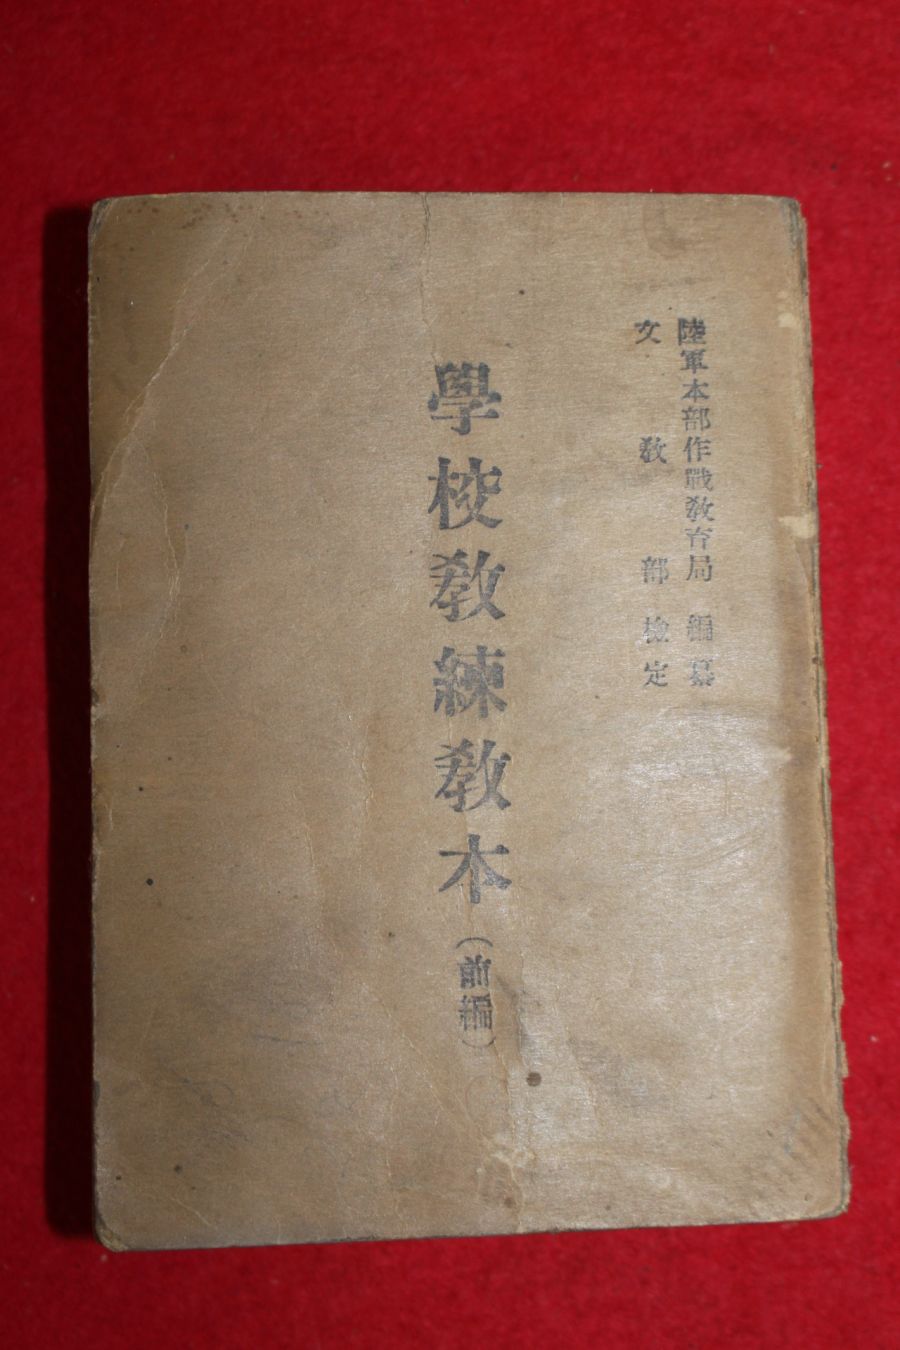 陸軍本部作戰敎育局 編纂
文敎部 檢定
學校敎練敎本(前編)